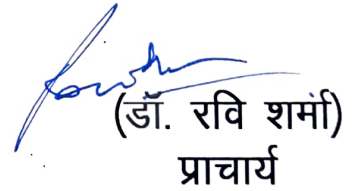 (डॉ. रवि शर्मा)
प्राचार्य